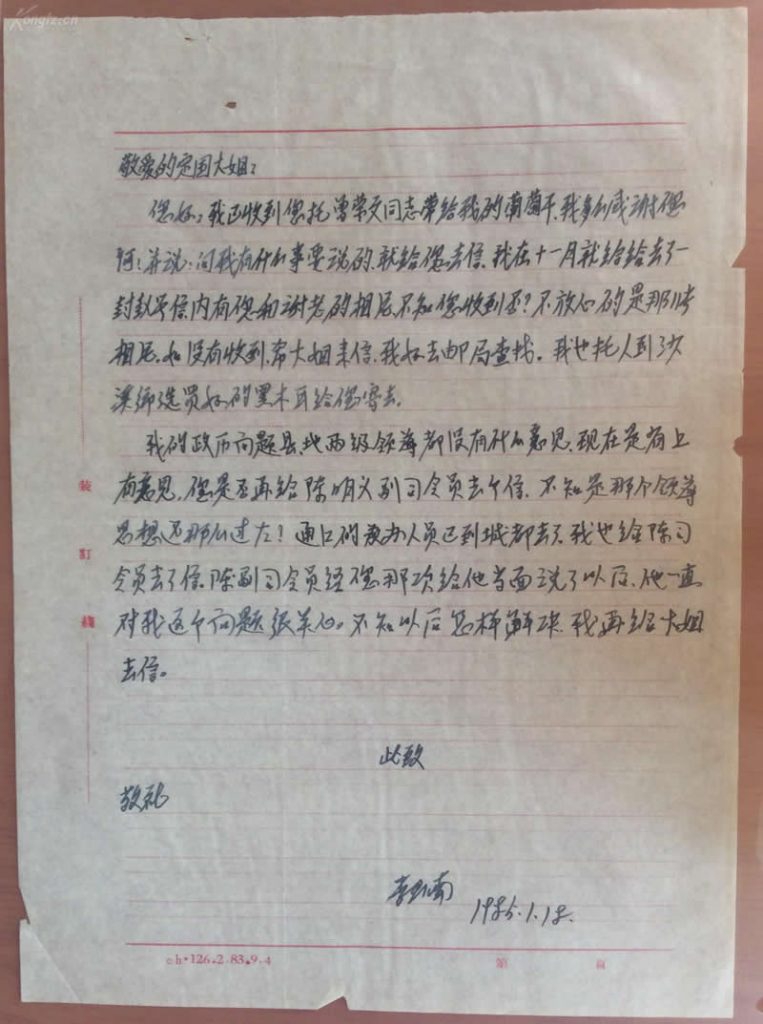 Kongfz.cn
敬爱的定国大姐:
您好,我已收到您托曾荣文同志带给我的葡萄干,我多么感谢您
阿!并说:问我有什么事要说的,就给您去信,我在十一月就给给去了一
封挂号信,内有您和谢老的相片,不知您收到否?不放心的是那张
相片,如没有收到,希大姐来信,我好去邮局查找。我也托人到
梁乡选买好的黑木耳给您寄去。
我的政历问题县、地两级领导都没有什么意见,现在是省上
有意见,您是否再给陈明义副司令员去个信,不知是那个领导
思想还那么过左!通江的承办人员已到城都去了,我也给陈司
令员去了信,陈副司令员经您那次给他当面说了以后,他一直
对我这个问题很关心。不知以后怎样解决,我再给大姐
去信。
此致
敬礼
1985.1.18.
装
訂
綫
ch·126.2.83.9.4
第 頁